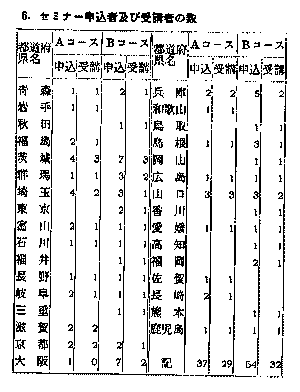 6. セミナー申込者及び受講者の数
都道府県名 Aコース Bコース 都道府県名 Aコース Bコース
申込 受講 申込 受講 申込 受講 申込 受講
青森 1 1 2 1 兵庫 2 2 5 2
岩手 1 1 和歌山 1 1
秋田 1 1 鳥取 1 1
福島 2 1 島根 1 1 3 1
茨城 4 3 7 3 岡山 1 1
群馬 1 1 3 2 広島 1 1 1 1
埼玉 4 2 3 1 山口 3 3 3 2
東京 2 1 香川 1 1
富山 2 1 1 1 愛媛 1 1 1 1
石川 1 1 1 1 高知 1 1
福井 1 1 福岡 2 1
長野 1 1 1 1 佐賀 1 1
岐阜 2 1 1 1 長崎 2 1
三重 1 1 熊本 1 1
滋賀 2 2 鹿児島 1 1 1 1
京都 2 2 2 1
大阪 1 0 7 2 計 37 29 54 32